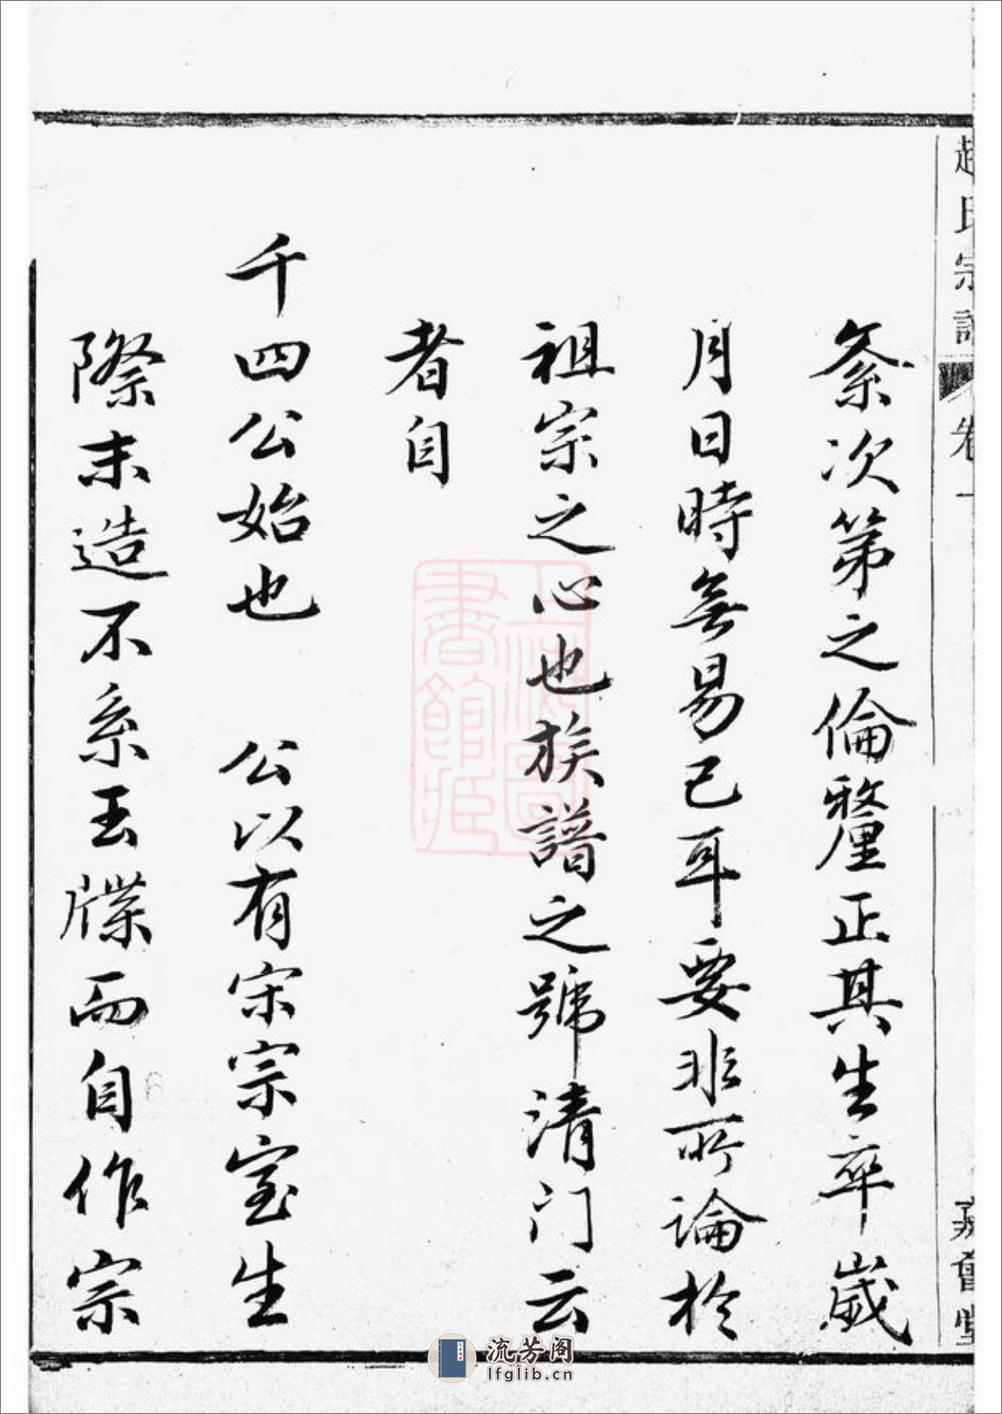 趙氏宗譜 卷一
紊次第之倫釐正其生卒歲
月日時無易已耳要非所論於
祖宗之心也族譜之號清门云
者自
千四公始也 公以有宋宗室生
際末造不系玉牒而自作宗
上海圖書館藏
流芳阁
lfglib.cn